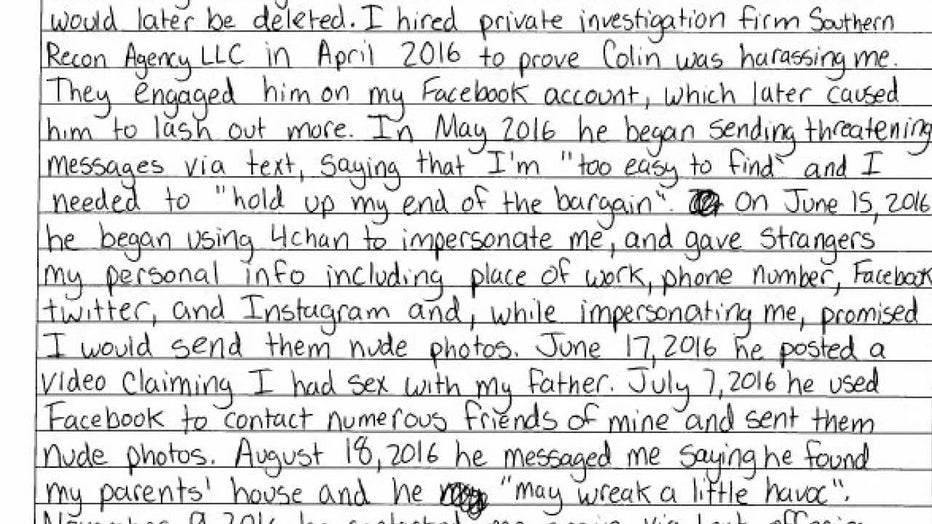 would later be deleted. I hired private investigation firm Southern
Recon Agency LLC in April 2016 to prove Colin was harassing me.
They engaged him on my Facebook account, which later caused
him to lash out more. In May 2016 he began sending threatening
messages via text, saying that I'm "too easy to find" and I
needed to "hold up my end of the bargain". On June 15, 2016
he began using 4chan to impersonate me, and gave strangers
my personal info including place of work, phone number, Facebook
twitter, and Instagram and, while impersonating me, promised
I would send them nude photos. June 17, 2016 he posted a
video claiming I had sex with my father. July 7, 2016 he used
Facebook to contact numerous friends of mine and sent them
nude photos. August 18, 2016 he messaged me saying he found
my parents' house and he "may wreak a little havoc".
2016 he